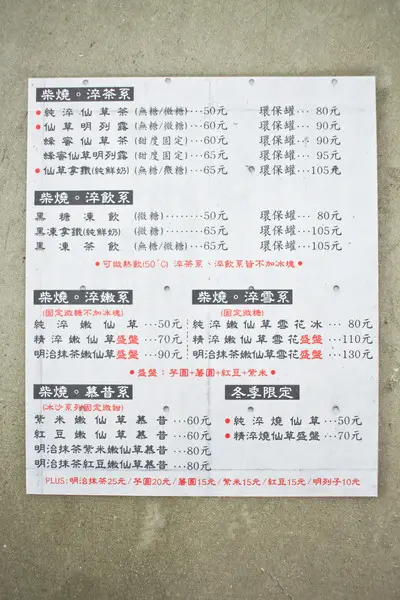 柴燒。淬茶系
•純淬仙草茶(無糖/微糖)···50元 環保罐··· 80元
•仙草明列露(無糖/微糖)···60元 環保罐··· 90元
蜂蜜仙草茶(甜度固定)···60元 環保罐··· 90元
蜂蜜仙草明列露(甜度固定)···65元 環保罐··· 95元
•仙草拿鐵(純鮮奶)(無糖/微糖)···65元 環保罐···105元
柴燒。淬飲系
黑糖凍飲(微糖)········50元 環保罐··· 80元
黑凍拿鐵(純鮮奶)(微糖)·····65元 環保罐···105元
黑凍茶飲(微糖)········65元 環保罐···105元
•可微熱飲(50°C) 淬茶系、淬飲系皆不加冰塊•
柴燒。淬嫩系
(固定微糖不加冰塊)
純淬嫩仙草···50元
精淬嫩仙草盛盤···70元
明治抹茶嫩仙草···90元
柴燒。淬雪系
(固定微糖)
純淬嫩仙草雪花冰··· 80元
精淬嫩仙草雪花盛盤···110元
明治抹茶嫩仙草雪花盛盤···130元
•盛盤：芋圓+薯圓+紅豆+紫米•
柴燒。慕昔系
(冰沙系列固定微甜)
紫米嫩仙草慕昔···60元
紅豆嫩仙草慕昔···60元
明治抹茶紫米嫩仙草慕昔···80元
明治抹茶紅豆嫩仙草慕昔···80元
冬季限定
•純淬燒仙草···50元
•精淬燒仙草盛盤···70元
PLUS:明治抹茶25元/芋圓20元/薯圓15元/紫米15元/紅豆15元/明列子10元